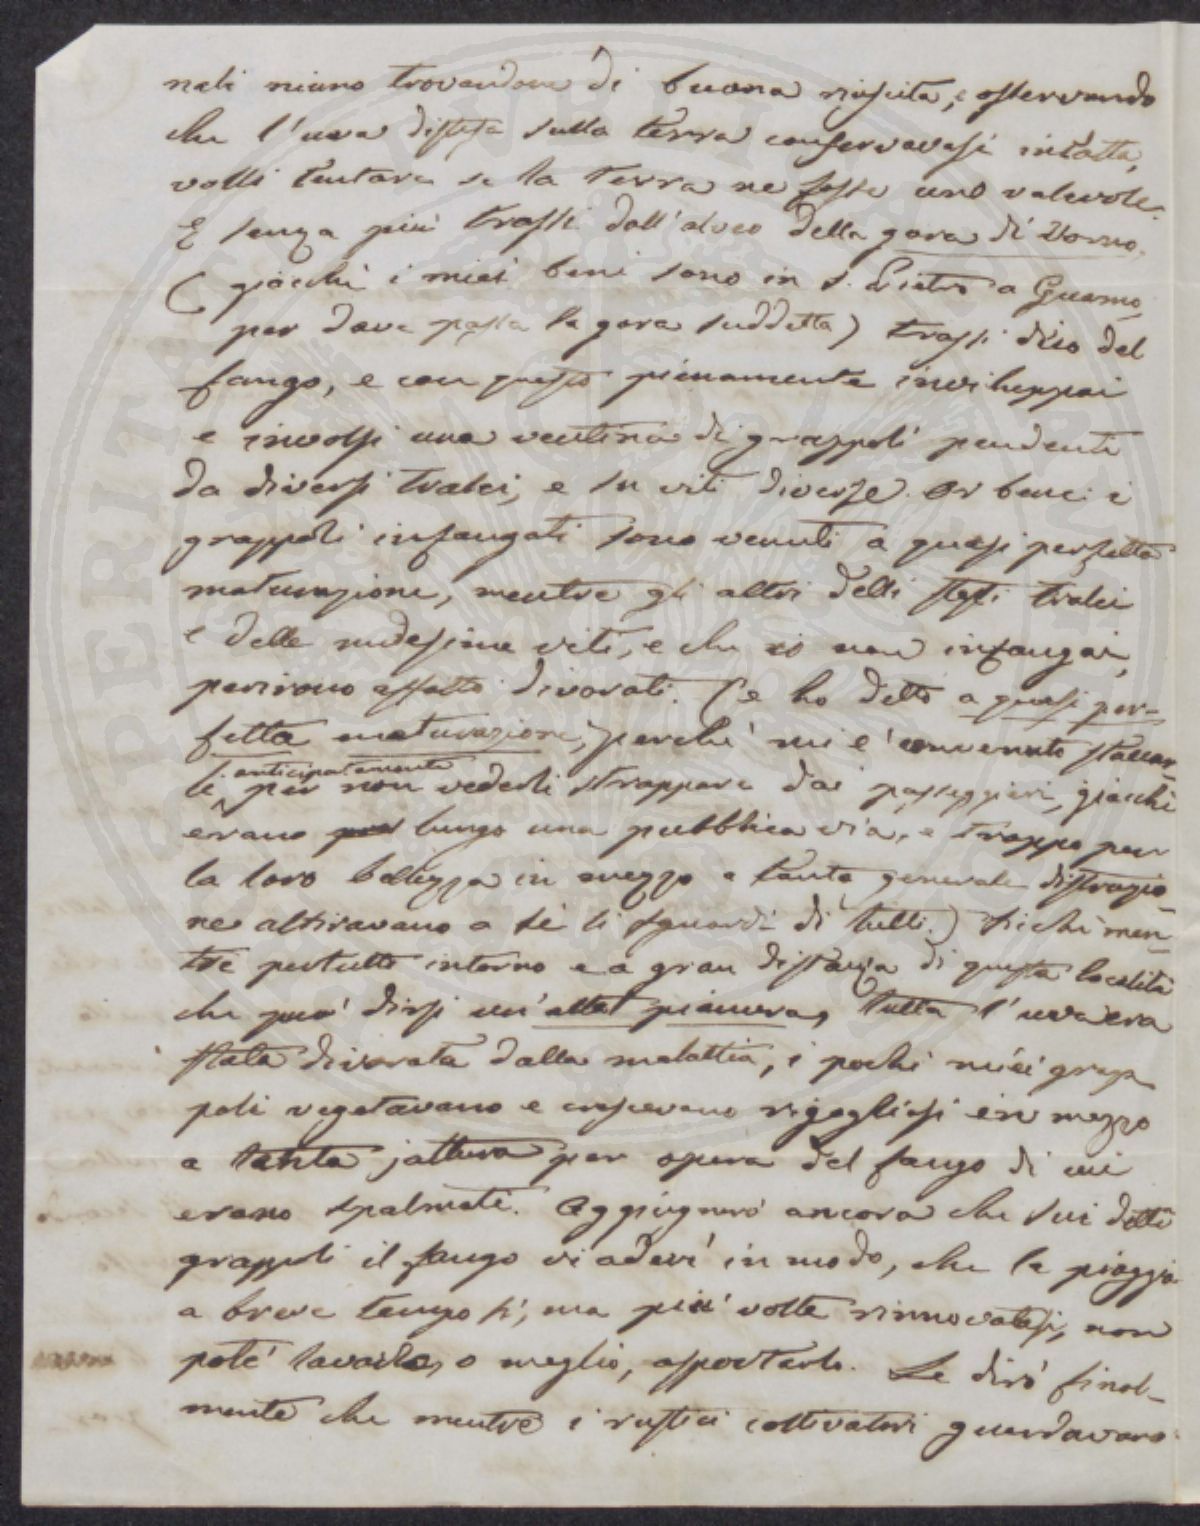 nali niuno trovandone di buona riuscita, e osservando
che l'uva distesa sulla terra conservavasi intatta,
volli tentare se la terra ne fosse uno valevole.
E senza più trassi dall'alveo della gora di Vorno,
(giacchè i miei beni sono in S. Pietro a Guamo
per dove passa la gora suddetta) trassi dico del
fango, e con questo pienamente inviluppai
e involsi una ventina di grappoli pendenti
da diversi tralci, e su viti diverse. Or bene i
grappoli infangati sono venuti a quasi perfetta
maturazione, mentre gli altri delli stessi tralci
e delle medesime viti, e che io non infangai,
perirono affatto divorati. (e ho detto a quasi per-
fetta maturazione, perchè mi è convenuto staccar-
li anticipatamente per non vederli strappare dai passeggieri, giacchè
erano lungo una pubblica via, e troppo per
la loro bellezza in mezzo a tanta generale distruzio-
ne attiravano a sè li sguardi di tutti.) Sicchè men-
tre pertutto intorno e a gran distanza di questa località
che può dirsi un'alta pianura, tutta l'uva era
stata divorata dalla malattia, i pochi miei grap
poli vegetavano e crescevano rigogliosi in mezzo
a tanta jattura per opera del fango di cui
erano spalmati. Aggiugnerò ancora che sui detti
grappoli il fango vi aderì in modo, che la pioggia
a breve tempo sì, ma più volte rinnovatasi, non
potè lavarlo, o meglio, asportarlo. Le dirò final-
mente che mentre i rustici coltivatori guardavano